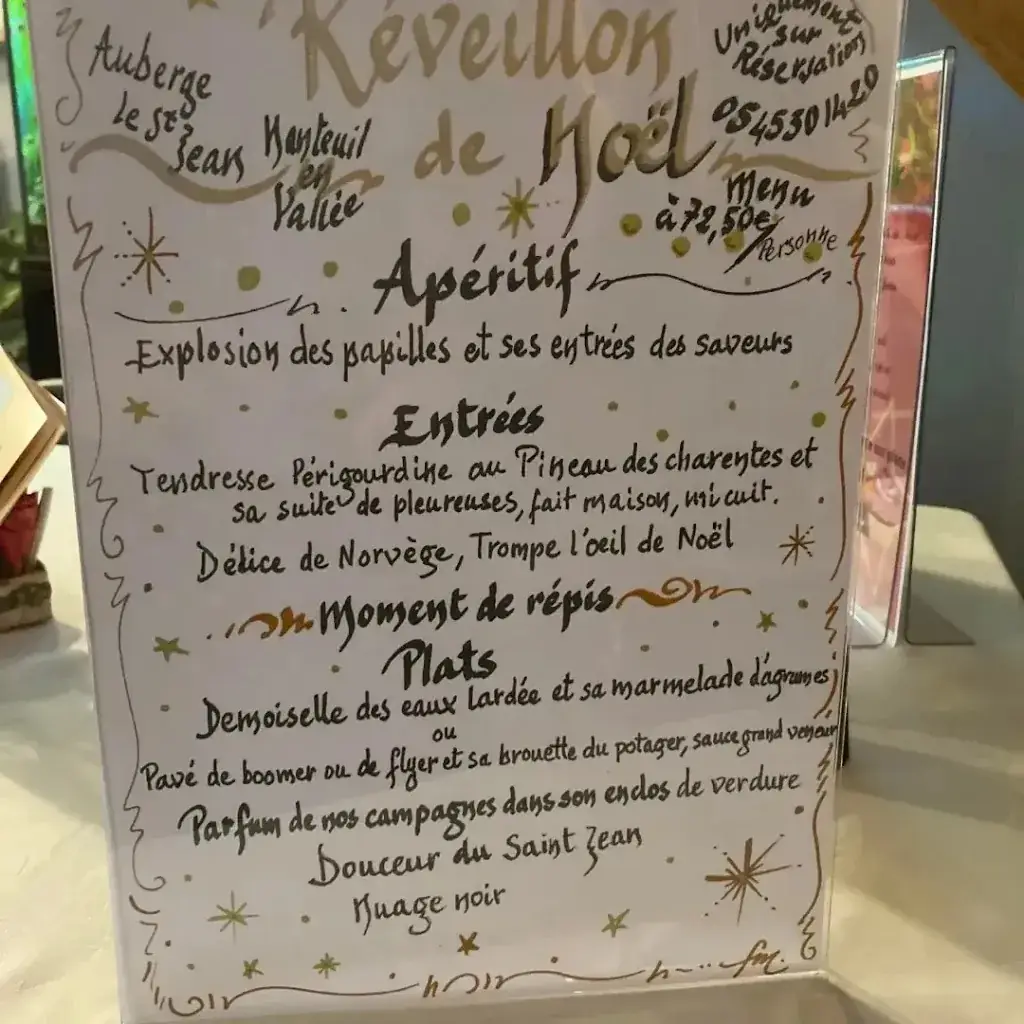 Réveillon
de Noël
Auberge
Le St
Jean
Nanteuil
en
Vallée
Uniquement
sur
Réservation
0545301420
Menu
à 72,50€
/Personne
Apéritif
Explosion des papilles et ses entrées des saveurs
Entrées
Tendresse Périgourdine au Pineau des charentes et
sa suite de pleureuses, fait maison, mi cuit.
Délice de Norvège, Trompe l'oeil de Noël
Moment de répis
Plats
Demoiselle des eaux lardée et sa marmelade d'agrumes
ou
Pavé de boomer ou de flyer et sa brouette du potager, sauce grand veneur
Parfum de nos campagnes dans son enclos de verdure
Douceur du Saint Jean
Nuage noir